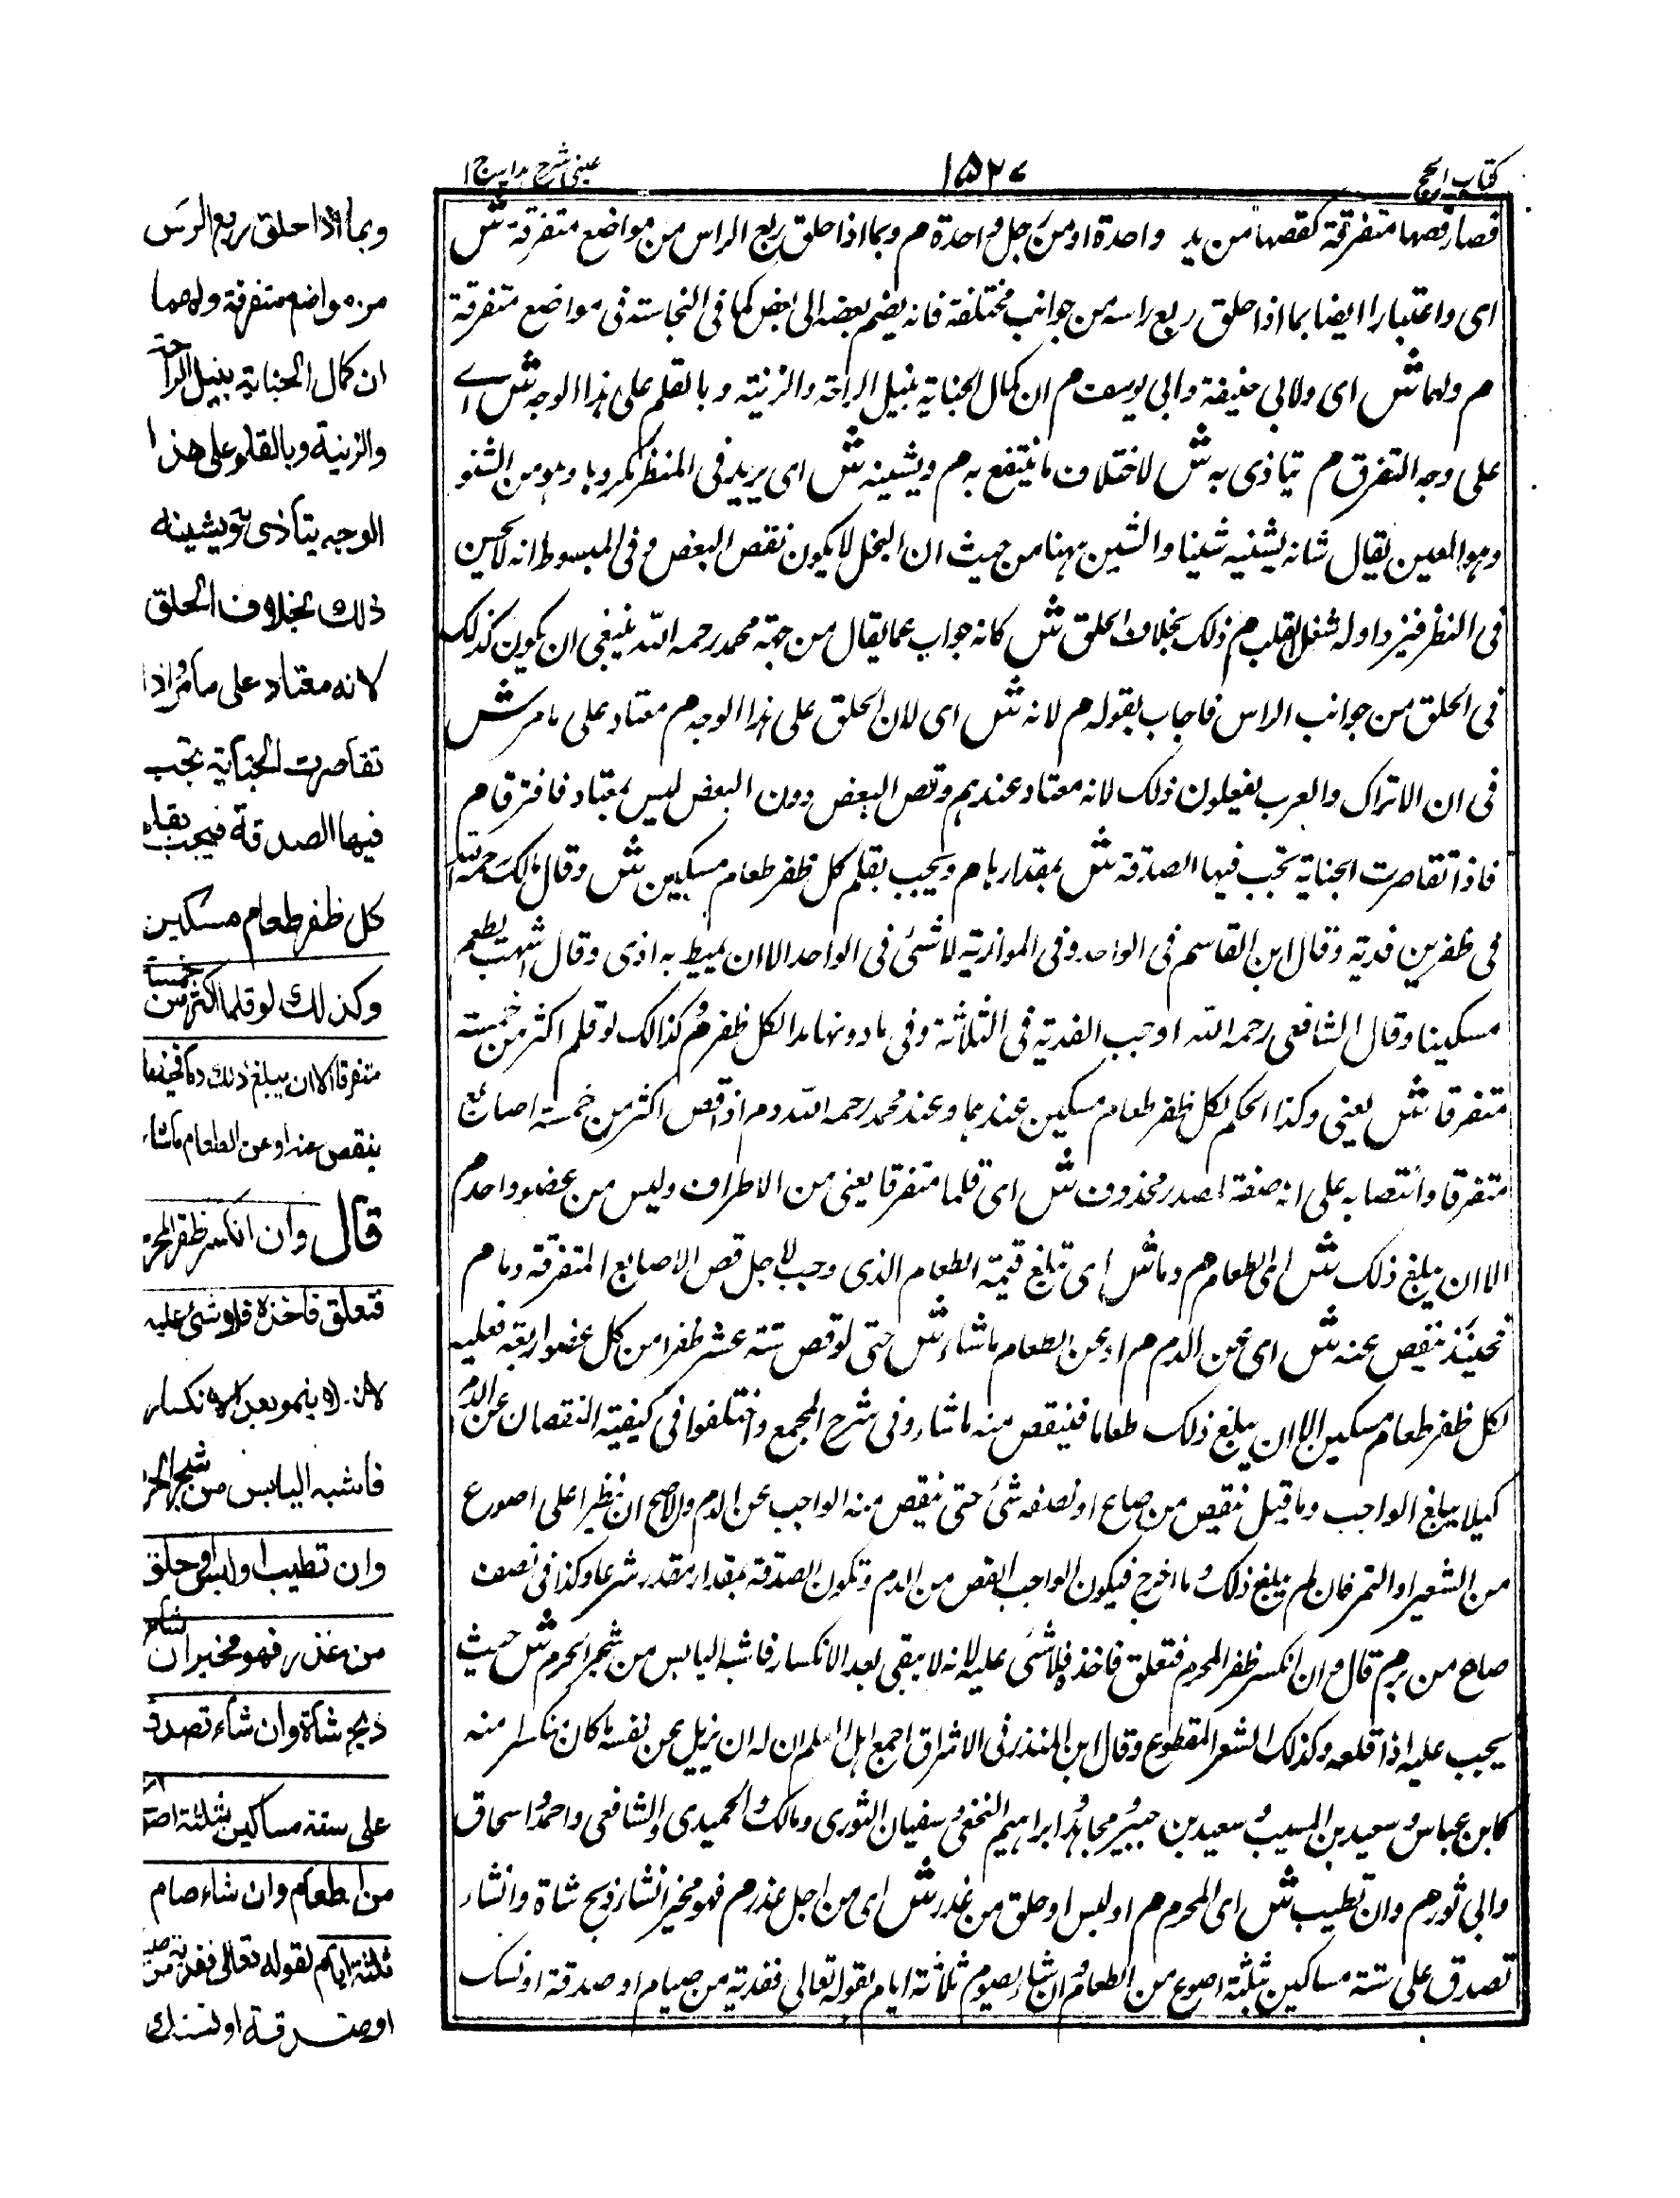 كتاب الحج
١٥٢٧
عینی شرح ہدایہ ج ١
فصار قصها متفرقة كقصها من يد واحدة او من رجل واحدة م وبما اذا حلق ربع الراس من مواضع متفرقة ش
اى واعتبارا ايضا بما اذا حلق ربع راسه من جوانب مختلفة فانه يضم بعضه الى بعض كما فى النجاسته فى مواضع متفرقة
م ولهما ش اى ولابى حنيفة وابى يوسف م ان كمال الجناية بنيل الراحة والزنية وبالقلم على هذا الوجه ش اے
على وجه التفرق م يتاذى به ش لاختلاف ما ينتفع به م ويشينه ش اى يريد فى المنظر مكروها وهو من الشنو
وهو العين يقال شانه يشنيه شينا والشين ههنا من حيث ان البخل لا يكون نقص البعض و فى المبسوط انه لا يحسن
فى النظر فيزداوله شغل القلب م ذلك بخلاف الحلق ش كانه جواب عما يقال من جهة محمد رحمه الله ينبغى ان يكون كذلك
فى الحلق من جوانب الراس فاجاب بقوله م لانه ش اى لان الحلق على هذا الوجه م معتاد على ما مر ش
فى ان الاتراك والعرب يفعلون ذلك لانه معتاد عندهم وقص البعض دون البعض ليس بمعتاد فافترقا م
فاذا تقاصرت الجناية تجب فيها الصدقة ش بمقدارها م ويجب بقلم كل ظفر طعام مسكين ش وقال مالك رحمه الله
فى ظفرين فدية وقال ابن القاسم فى الواحد وفى الموازية لا شئ فى الواحد الا ان يميط به اذى وقال اشهب يطعم
مسكينا وقال الشافعى رحمه الله اوجب الفدية فى الثلاثة وفى ما دونها مدا لكل ظفر م وكذالك لو قلم اكثر من خمسته
متفرقا ش يعنى وكذا الحكم لكل ظفر طعام مسكين عندهما وعند محمد رحمه الله دم اذا قص اكثر من خمسة اصابع
متفرقا وانتصابه على انه صفة لمصدر محذوف ش اى قلما متفرقا يعنى من الاطراف وليس من عضو واحد م
الا ان يبلغ ذلك ش اى الطعام م دما ش اى تبلغ قيمة الطعام الذى وجب لاجل قص الاصابع المتفرقة دما م
فحينئذ ينقص عنه ش اى عن الدم م او عن الطعام ما شاء ش حتى لو قص ستة عشر ظفرا من كل عضو اربعة فعليه
لكل ظفر طعام مسكين الا ان يبلغ ذلك طعاما فينقص منه ما شاء وفى شرح المجمع واختلفوا فى كيفية النقصان عن الدم
كيلا يبلغ الواجب وما قيل ينقص من صاع او نصفه شئ حتى ينقص منه الواجب عن الدم والاصح ان ينظر اعلى اصوع
من الشعير او التمر فان لم يبلغ ذلك ما اخرج فيكون الواجب انقص من الدم وتكون الصدقة بمقدار مقدر شرعا وكذا فى نصف
صاح من برم قال م وان انكسر ظفر المحرم فتعلق فاخذه فلا شئ عليه لانه لا يبقى بعد الانكسار فاشبه اليابس من شجر الحرم ش حيث
يجب عليه اذا قلعه وكذلك الشعر المقطوع وقال ابن المنذر فى الاشراق اجمع اهل العلم ان له ان يزيل عن نفسه ما كان منكسرا منه
كابن عباس وسعيد بن المسيب وسعيد بن جبير ومجاهد وابراهيم النخعى وسفيان الثورى ومالك والحميدى والشافعى واحمد واسحاق
وابى ثور م وان تطيب ش اى المحرم م او لبس او حلق من عذر ش اى من اجل عذر م فهو مخير انشاء ذبح شاة وانشاء
تصدق على ستة مساكين بثلثة اصوع من الطعام وان شاء يصوم ثلاثة ايام لقوله تعالى ففدية من صيام او صدقة او نسك
وبما اذا حلق ربع الرأس
من مواضع متفرقة ولهما
ان كمال الجناية بنيل الراحة
والزنية وبالقلم على هذا
الوجه يتأذى به ويشينه
ذلك بخلاف الحلق
لانه معتاد على ما مر واذا
تقاصرت الجناية تجب
فيها الصدقة فيجب بقلم
كل ظفر طعام مسكين
وكذلك لو قلم اكثر من خمسة
متفرقا الا ان يبلغ ذلك دما فحينئذ
ينقص عنه او عن الطعام ما شاء
قال وان انكسر ظفر المحرم
فتعلق فاخذه فلا شئ عليه
لانه لا ينمو بعد الانكسار
فاشبه اليابس من شجر الحرم
وان تطيب او لبس او حلق
من عذر فهو مخير ان شاء
ذبح شاة وان شاء تصدق
على ستة مساكين بثلثة اصوع
من الطعام وان شاء صام
ثلثة ايام لقوله تعالى ففدية من صيام
او صدقة او نسك